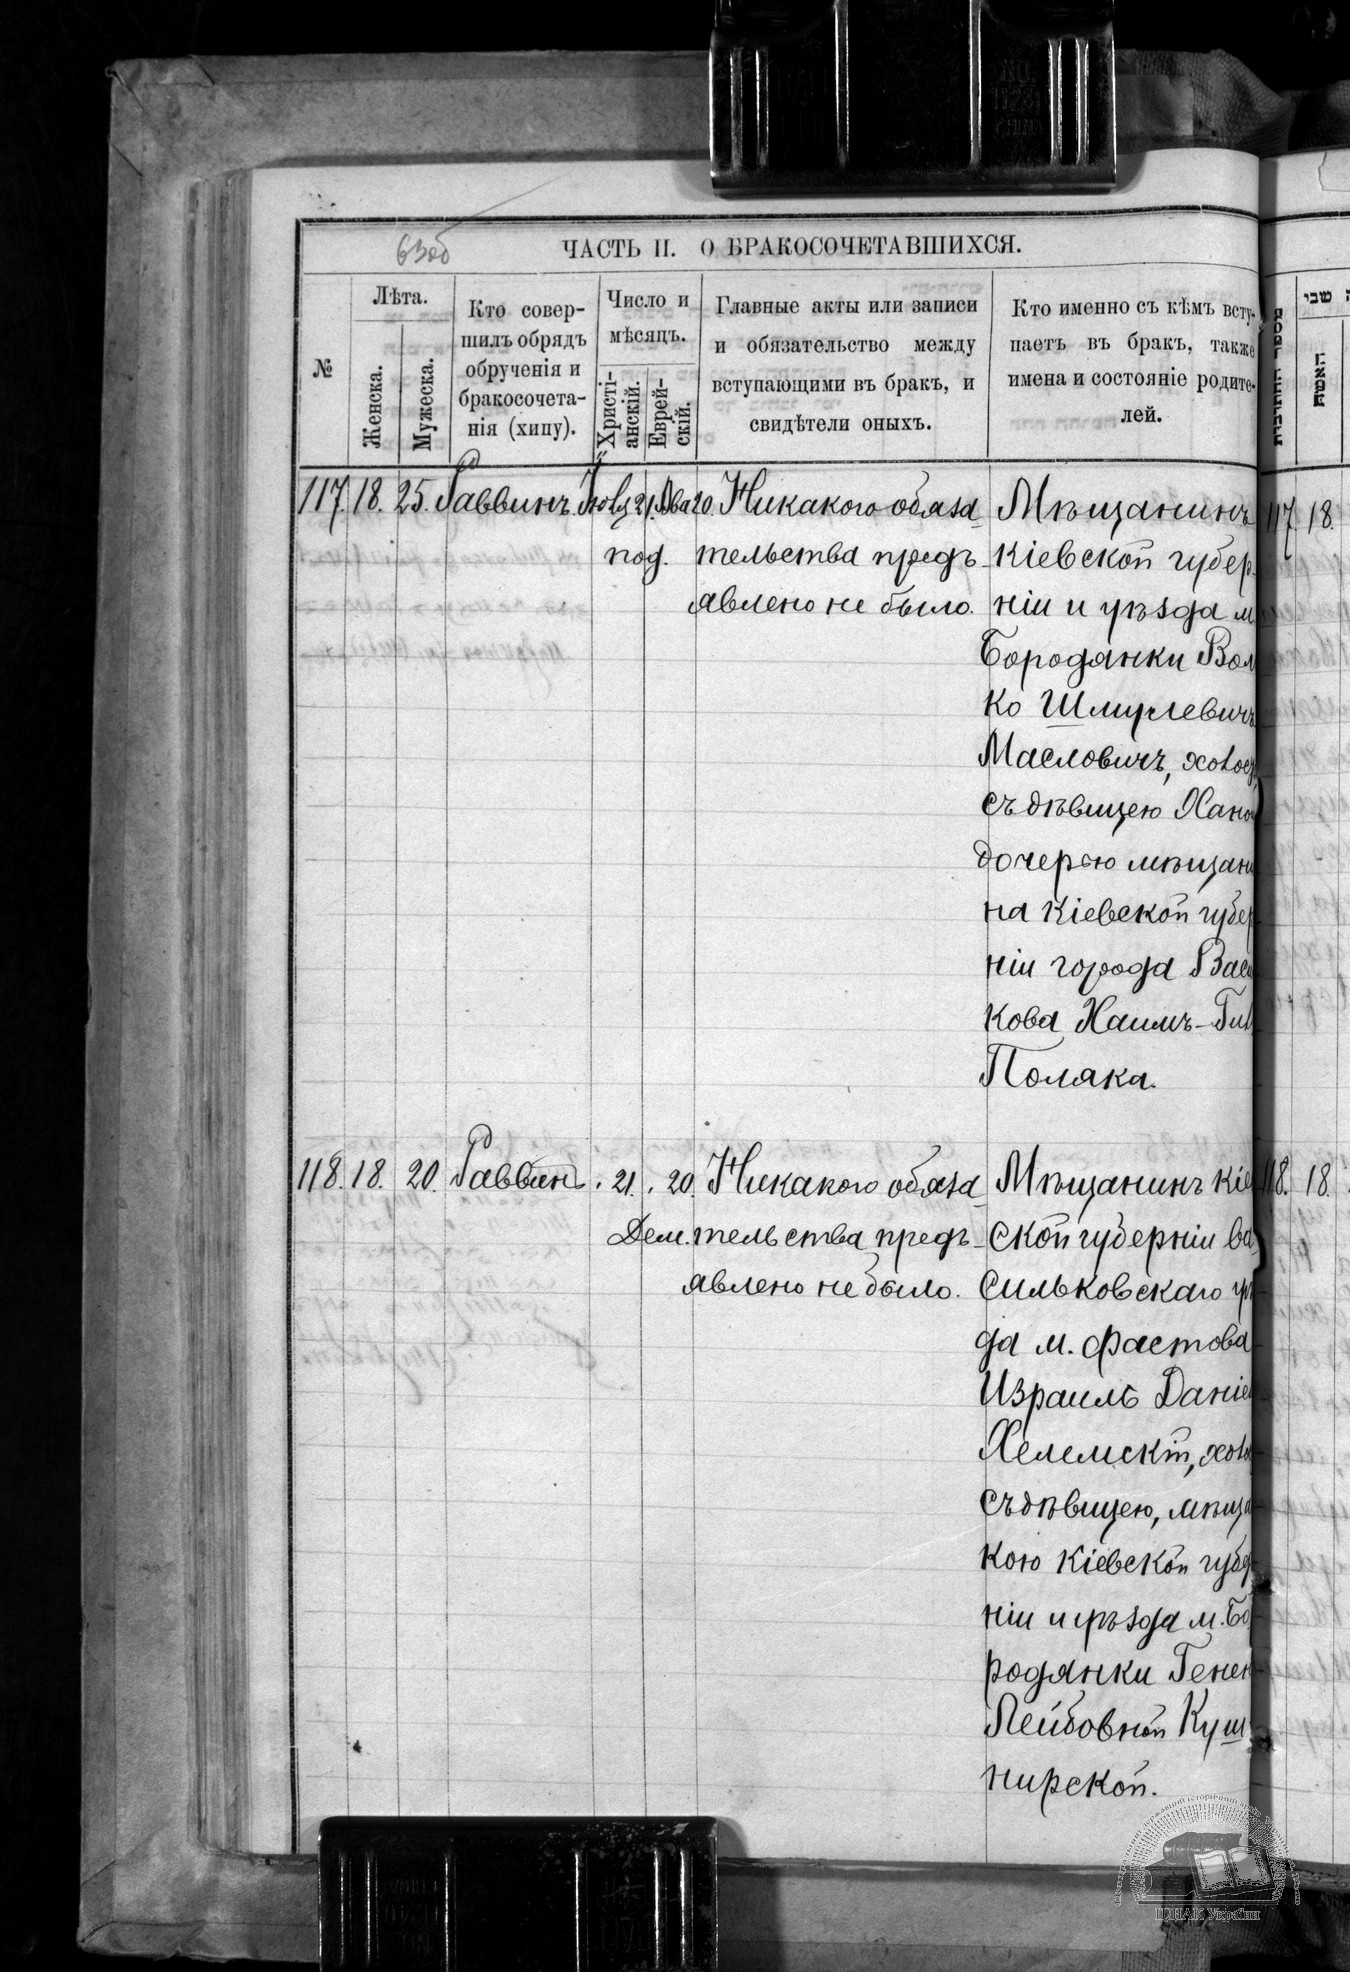 63об
ЧАСТЬ II. О БРАКОСОЧЕТАВШИХСЯ.
№
Лѣта.
Женска.
Мужеска.
Кто совер-
шилъ обрядъ
обрученія и
бракосочета-
нія (хипу).
Число и
мѣсяцъ.
Христі-
анскій.
Еврей-
скій.
Главные акты или записи
и обязательство между
вступающими въ бракъ, и
свидѣтели оныхъ.
Кто именно съ кѣмъ всту-
паетъ въ бракъ, также
имена и состояніе родите-
лей.
117. 18. 25. Раввинъ. 21. 20. Никакого обяза
тельства предъ-
явлено не было.
Мѣщанинъ
Кіевской губер-
ніи и уѣзда м.
Бородянки Вол
ко Шмулевичъ
Масловичъ,
съ дѣвицею Ханою
дочерью мѣщани
на Кіевской губер
ніи города Васи
кова Хаимъ-
Поляка.
118. 18. 20. Раввинъ. 21. 20. Никакого обяза
тельства предъ-
явлено не было.
Мѣщанинъ Кіев
ской губерніи Ва
сильковскаго уѣ
да м. Фастова
Израиль Даніел
Хелемскій,
съ дѣвицею, мѣща
кою Кіевской губер
ніи и уѣзда м. Бо
родянки Генен
Лейбовной Куш
нирской.
117. 18.
118. 18.
ЦДІАК України